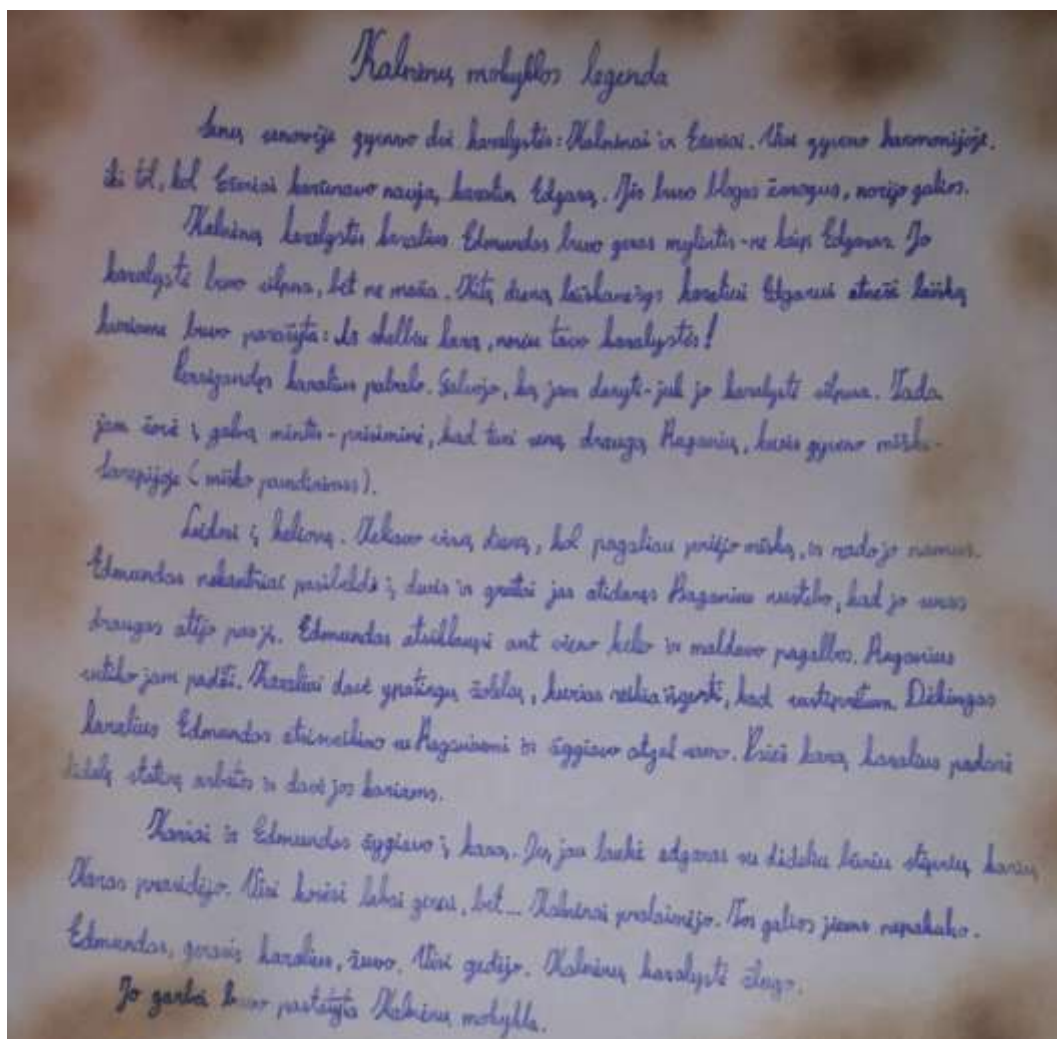 Kalnėnų mokyklos legenda
Senų senovėje gyveno dvi karalystės: Kalnėnai ir Ežeriai. Visi gyveno harmonijoje,
iki tol, kol Ežeriai karūnavo naują karalių Edgarą. Jis buvo blogas žmogus, norėjo galios.
Kalnėnų karalystės karalius Edmundas buvo geras mylintis-ne kaip Edgaras. Jo
karalystė buvo silpna, bet ne maža. Kitą dieną laiškanešys karaliui Edgarui atnešė laišką
kuriame buvo parašyta: Aš skelbiu karą, noriu tavo karalystės!
Persigandęs karalius pabalo. Galvojo, ką jam daryti-juk jo karalystė silpna. Tada
jam šovė į galvą mintis-prisiminė, kad turi seną draugą Raganių, kuris gyveno
(miško pavadinimas).
Leidosi į kelionę. Keliavo visą dieną, kol pagaliau priėjo mišką, ir rado jo namus.
Edmundas nekantriai pasibeldė į duris ir greitai jas atidaręs Raganius nustebo, kad jo senas
draugas atėjo pas jį. Edmundas atsiklaupė ant vieno kelio ir maldavo pagalbos. Raganius
sutiko jam padėti. Karaliui davė ypatingų žolelių, kurias reikia išgerti, kad sustiprėtum. Dėkingas
karalius Edmundas atsisveikino su Raganiumi ir žygiavo atgal namo. Prieš karą karalius padarė
didelę statinę arbatos ir davė jos kariams.
Kariai ir Edmundas žygiavo į karą. Jų jau laukė edgaras su dideliu būriu stiprių karių
Karas prasidėjo. Visi kovėsi labai gerai, bet... Kalnėnai pralaimėjo. Jos galios jiems nepakako.
Edmundas, gerasis karalius, žuvo. Visi gedėjo. Kalnėnų karalystė žlugo.
Jo garbei buvo pastatyta Kalnėnų mokykla.